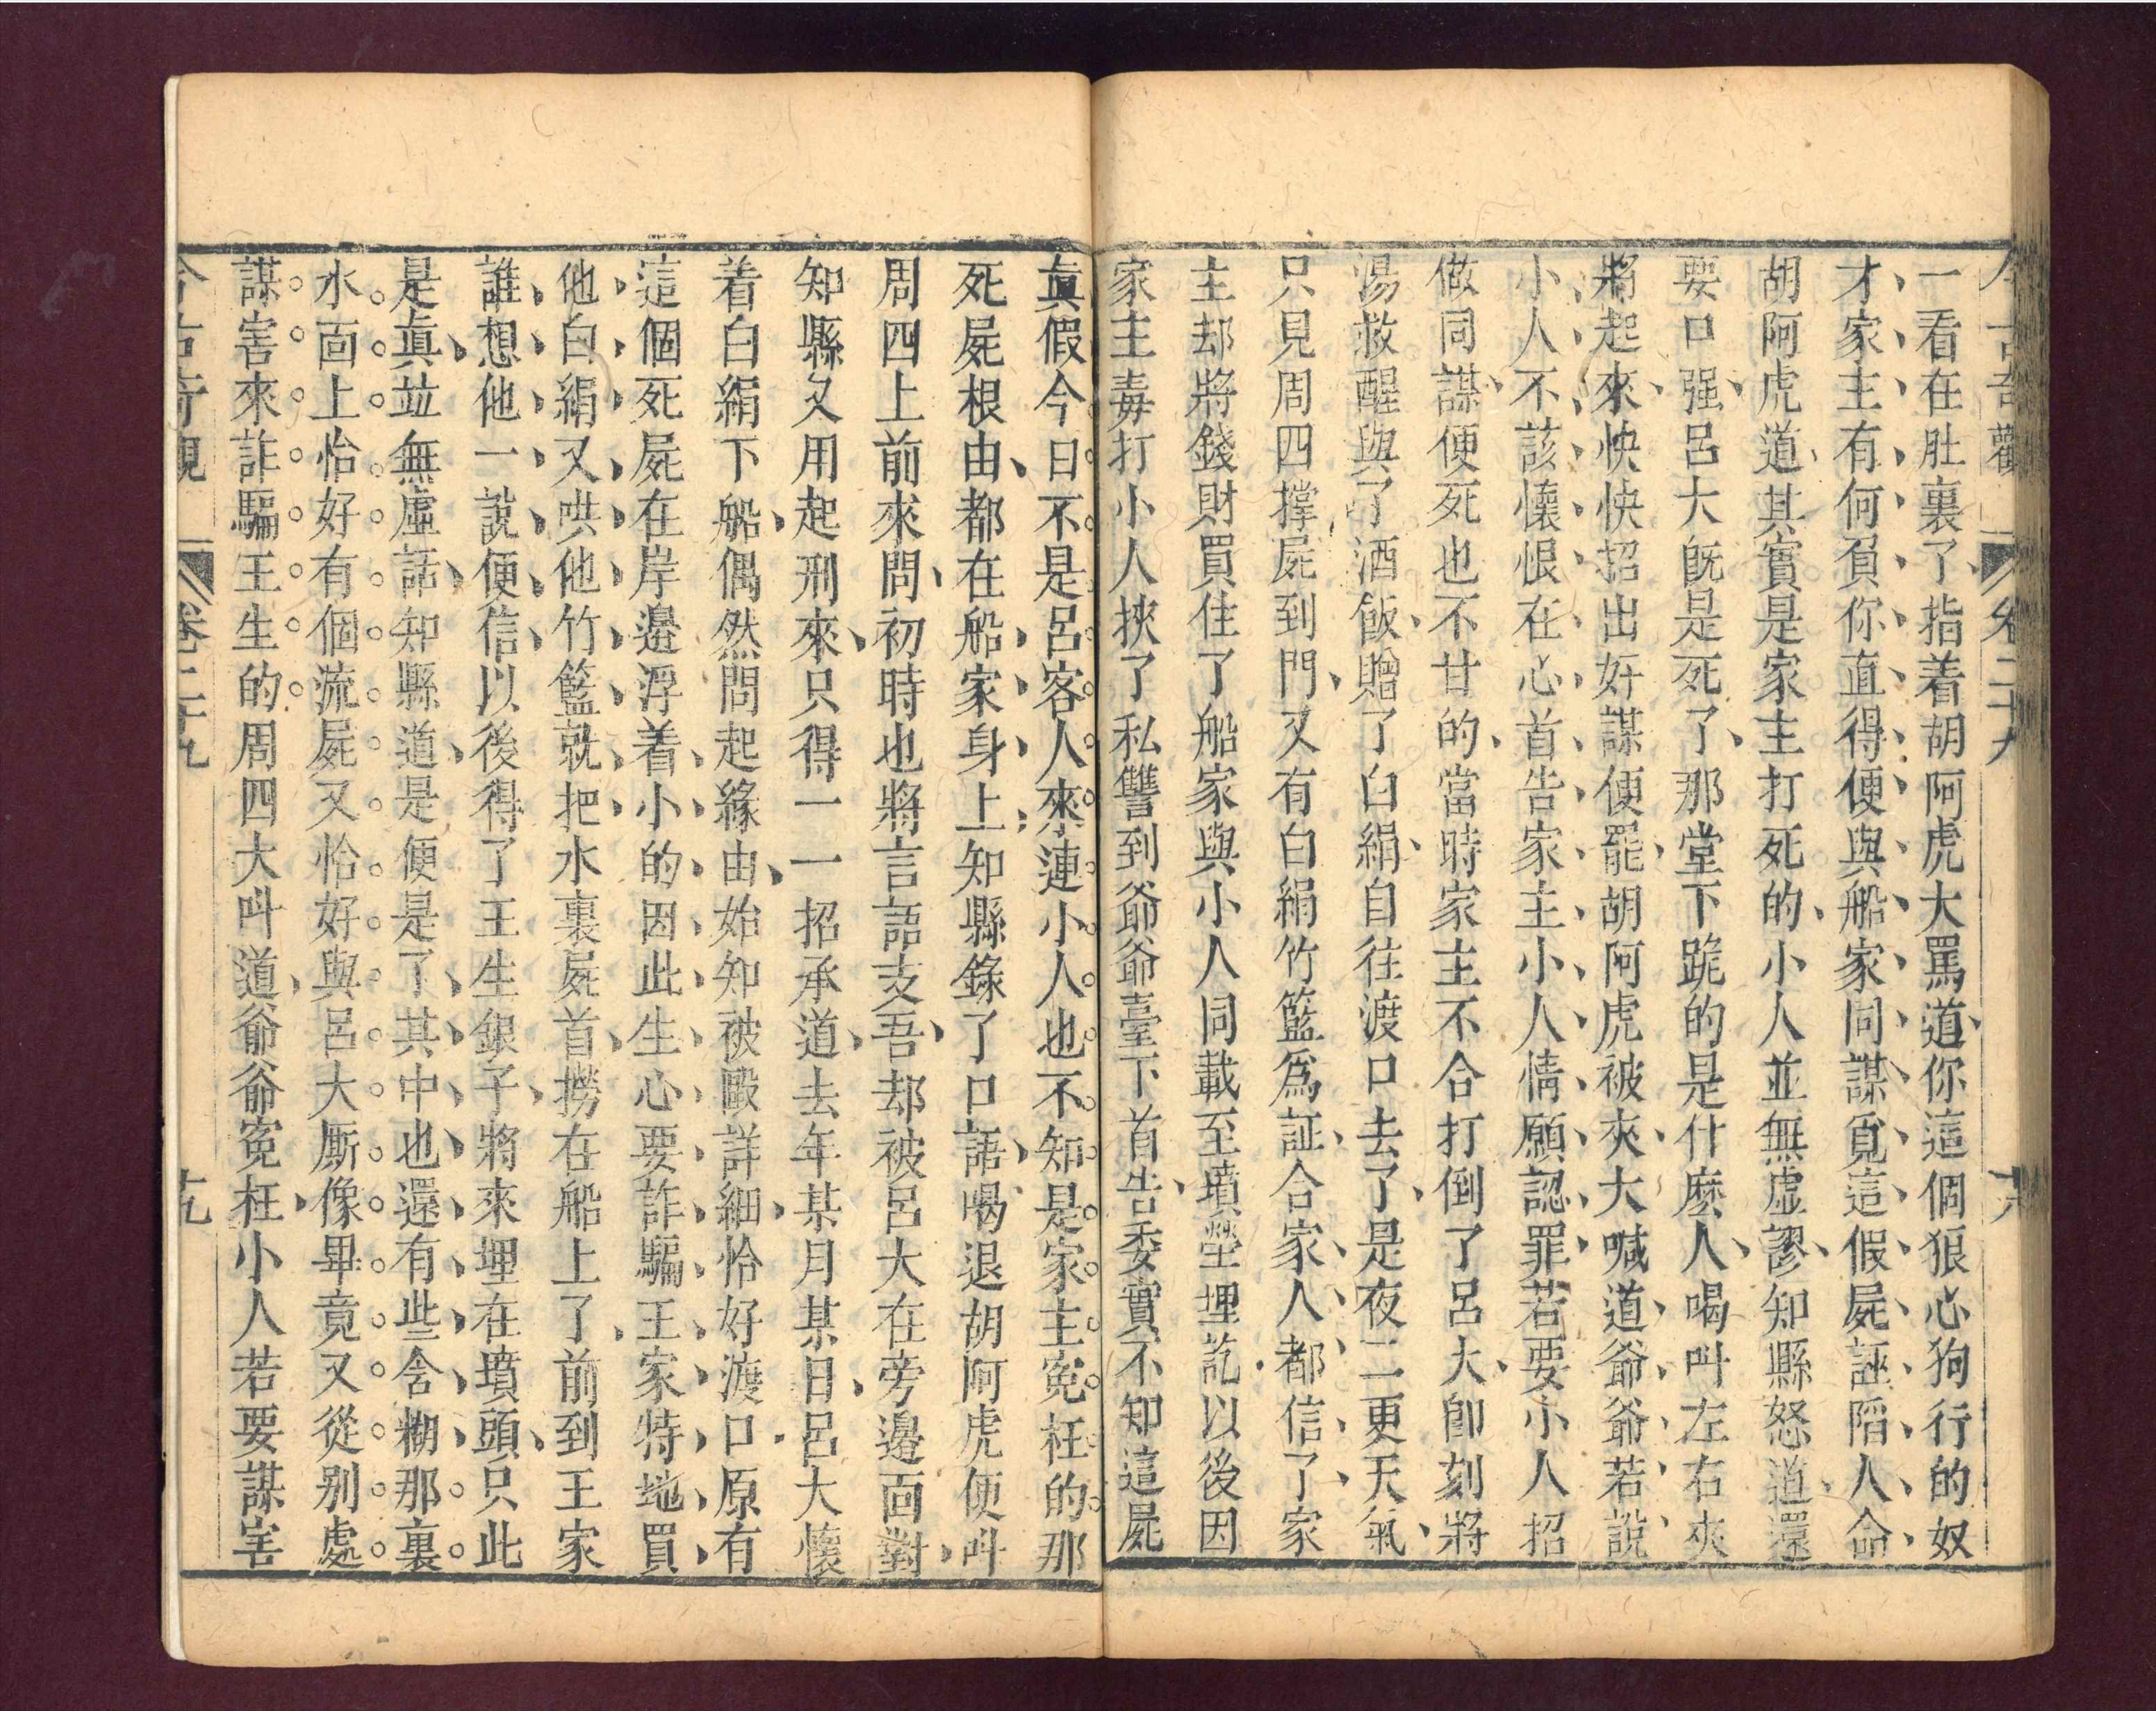 今古奇觀 卷二十九 十八
一看在肚裏了指着胡阿虎大罵道你這個狠心狗行的奴
才家主有何負你直得便與船家同謀覓這假屍誣陷人命
胡阿虎道其實是家主打死的小人並無虛謬知縣怒道還
要口强呂大既是死了那堂下跪的是什麽人喝叫左右夾
將起來快快招出奸謀便罷胡阿虎被夾大喊道爺爺若說
小人不該懷恨在心首告家主小人情願認罪若要小人招
做同謀便死也不甘的當時家主不合打倒了呂大卽刻將
湯救醒與了酒飯贈了白絹自往渡口去了是夜二更天氣
只見周四撑屍到門又有白絹竹籃爲証合家人都信了家
主却將錢財買住了船家與小人同載至墳塋埋訖以後因
家主毒打小人挾了私讐到爺爺臺下首告委實不知這屍
眞假今日不是呂客人來連小人也不知是家主冤枉的那
死屍根由都在船家身上知縣錄了口語喝退胡阿虎便叫
周四上前來問初時也將言語支吾却被呂大在旁邊面對
知縣又用起刑來只得一一招承道去年某月某日呂大懷
着白絹下船偶然問起緣由始知被毆詳細恰好渡口原有
這個死屍在岸邊浮着小的因此生心要詐騙王家特地買
他白絹又哄他竹籃就把水裏屍首撈在船上了前到王家
誰想他一說便信以後得了王生銀子將來埋在墳頭只此
是眞並無虛話知縣道是便是了其中也還有些含糊那裏
水面上恰好有個流屍又恰好與呂大厮像畢竟又從别處
謀害來詐騙王生的周四大叫道爺爺冤枉小人若要謀害
今古奇觀 卷二十九 十九